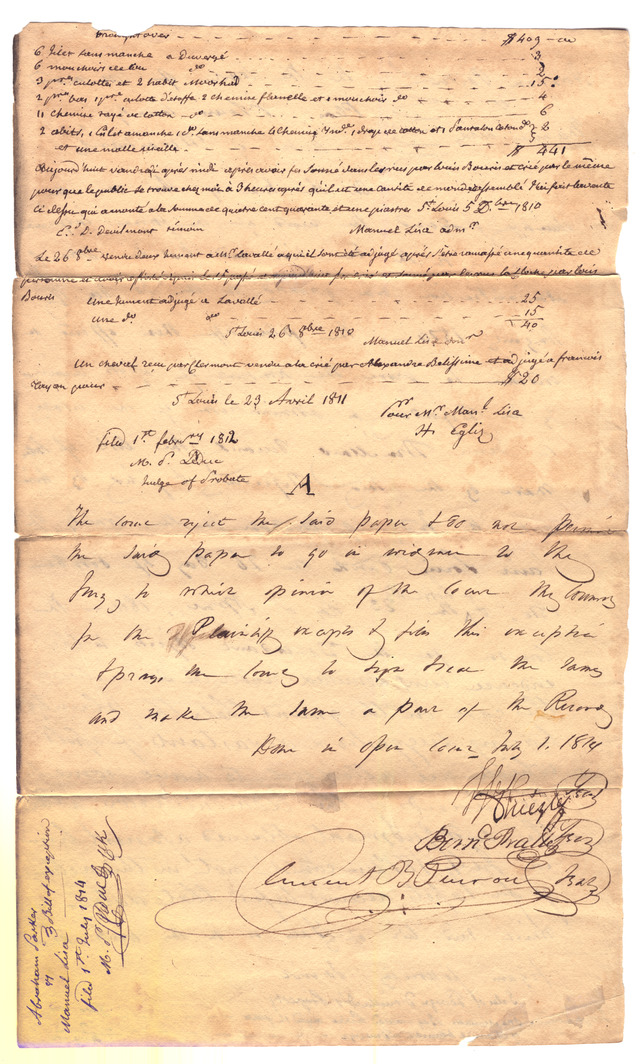 brought over $ 409 - 00
6 Gilet sans manche a Duvergé 3
6 mouchoirs de cou do 2
3 pres culottes et 2 habit 15
2 pres bas 1 pre culotte d'étoffe 2 chemise flanelle et 1 mouchoir do 4
11 chemise rayé de cotton do 6
2 abits, 1 Gilet a manche 1 do sans manche 1 Chemise 2
et une malle vieille
$ 441
Aujourd'huit vandredi après midi après avoir fes sonné dans les rues par louis Bouris et crié par le même
pour que le public se trouve chez moi à 3 heures après qu'il est une cantité de monde assemblé J'ai fait la vante
ci dessu qui a monté a la somme de quatre cent quarante et une piastres St Louis 5 Dbre 1810
D. Devilmont témoin Manuel Lisa admr
Le 26 8bre vendu deux Jument a Mr Lavallé a qui il sont été adjugé après s'etre ramassé une quantite de
personne et avoir par louis
Bouris
Une Jument adjugé a Lavallé 25
Une do do 15
40
St Louis 26 8bre 1810
Manuel Lisa
Un cheval reçu par Clermont vendu a la crié par Alexandre Belissime et adjugé a francois
rayon pour $ 20
St Louis le 23 Avril 1811
Pour Mr Manl Lisa
H. Egliz
filed 1st febry 1812
M. P. Leduc
Judge of Probate
A
The Court reject the said paper & do not permit
the said paper to go in evidence to the
Jury, to which opinion of the court the Counsel
for the Plaintiff excepts & files this exception
& prays the Court to sign & seal the same
and make the same a part of the Record
Done in open Court July 1. 1814
Bernd Pratte Seal
Seal
Abraham Parker
vs } Bill of exception
Manuel Lisa
filed 1st July 1814
M. P. Leduc Clk